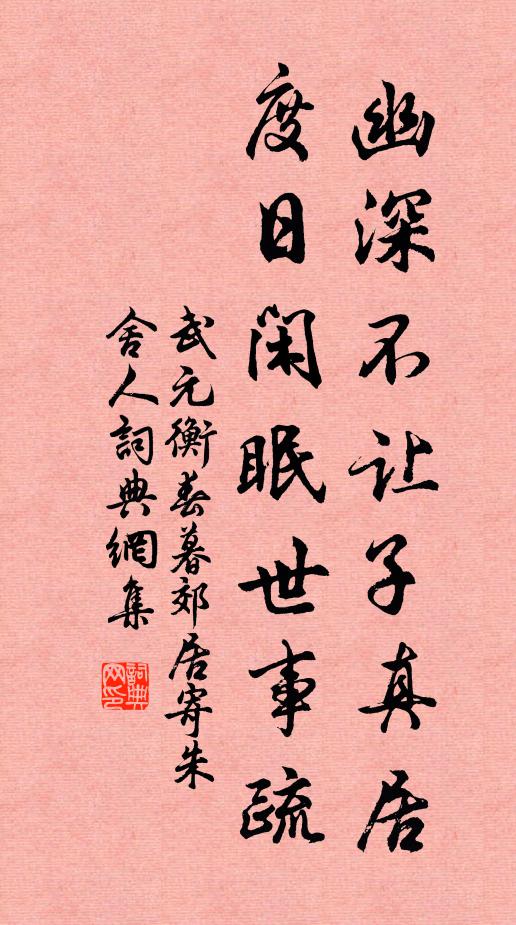 幽深不让子真居
度日闲眠世事疏
武元衡春暮郊居寄朱
舍人詞典網集
詞典网印